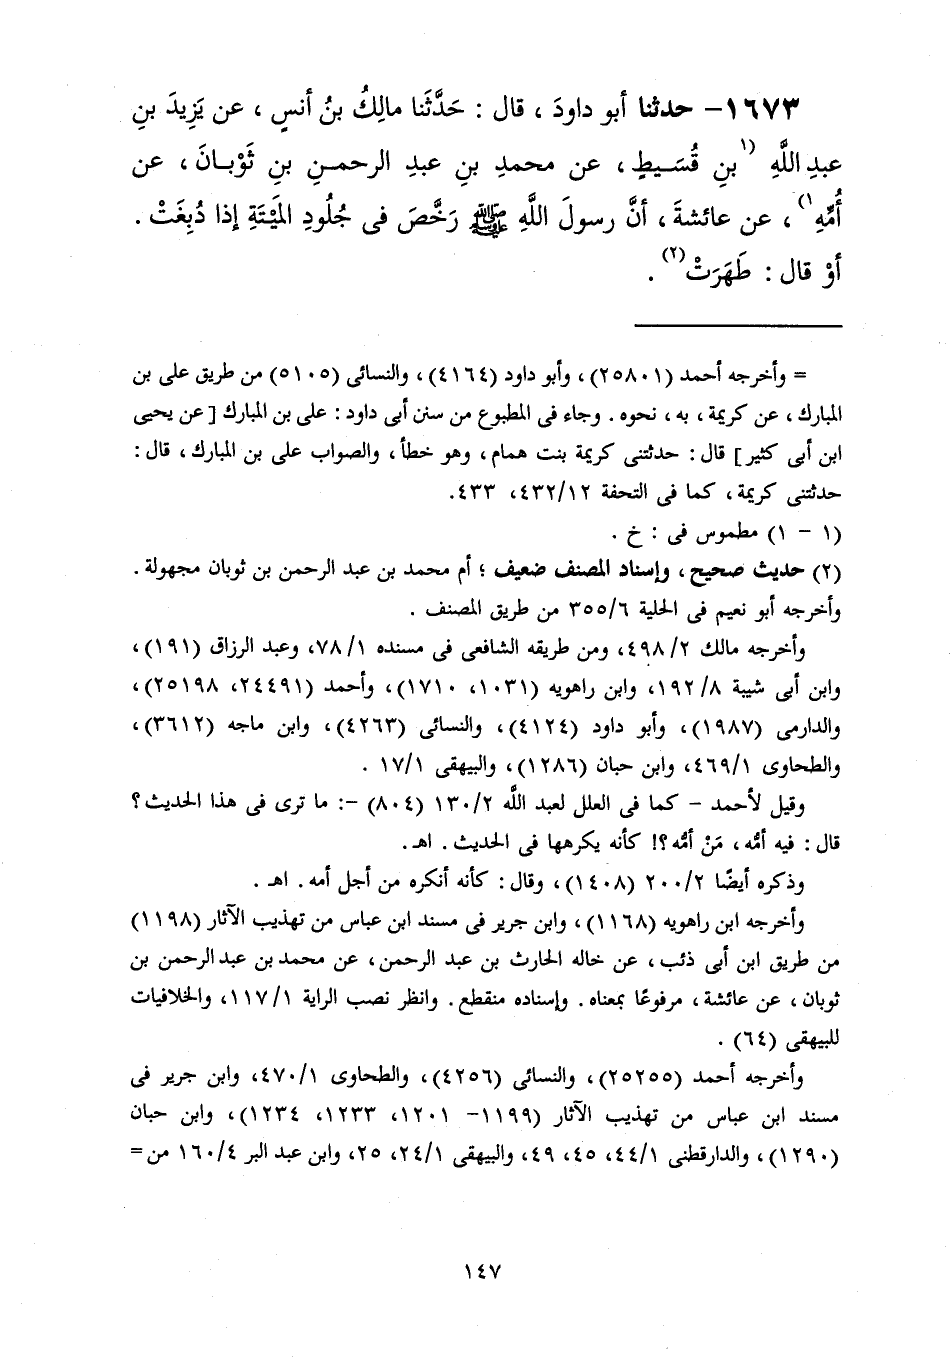 ١٦٧٣- حدثنا أبو داودَ ، قال : حَدَّثَنا مالِكُ بنُ أنسٍ ، عن يَزِيدَ بنِ
عبدِ اللَّهِ (١بنِ قُسَيطٍ ، عن محمدِ بنِ عبدِ الرحمنِ بنِ ثَوْبانَ ، عن
أُمِّهِ١) ، عن عائشةَ ، أنَّ رسولَ اللَّهِ ﷺ رَخَّصَ فى جُلُودِ المَيْتَةِ إذا دُبِغَتْ .
أوْ قال : طَهَرَتْ(٢) .
= وأخرجه أحمد (٢٥٨٠١)، وأبو داود (٤١٦٤)، والنسائى (٥١٠٥) من طريق على بن
المبارك ، عن كريمة ، به ، نحوه . وجاء فى المطبوع من سنن أبى داود : على بن المبارك [ عن يحيى
ابن أبى كثير ] قال : حدثتنى كريمة بنت همام ، وهو خطأ ، والصواب على بن المبارك ، قال :
حدثتنى كريمة ، كما فى التحفة ٤٣٢/١٢، ٤٣٣.
(١ - ١) مطموس فى : خ .
(٢) حديث صحيح ، وإسناد المصنف ضعيف ؛ أم محمد بن عبد الرحمن بن ثوبان مجهولة .
وأخرجه أبو نعيم فى الحلية ٣٥٥/٦ من طريق المصنف .
وأخرجه مالك ٤٩٨/٢، ومن طريقه الشافعى فى مسنده ٧٨/١، وعبد الرزاق (١٩١)،
وابن أبى شيبة ١٩٢/٨، وابن راهويه (١٠٣١، ١٧١٠)، وأحمد (٢٤٤٩١، ٢٥١٩٨)،
والدارمى (١٩٨٧)، وأبو داود (٤١٢٤)، والنسائى (٤٢٦٣)، وابن ماجه (٣٦١٢)،
والطحاوى ٤٦٩/١، وابن حبان (١٢٨٦)، والبيهقى ١٧/١ .
وقيل لأحمد - كما فى العلل لعبد اللَّه ١٣٠/٢ (٨٠٤) -: ما ترى فى هذا الحديث؟
قال : فيه أمُّه ، مَنْ أمُّه ؟! كأنه يكرهها فى الحديث . اهـ.
وذكره أيضًا ٢٠٠/٢ (١٤٠٨)، وقال : كأنه أنكره من أجل أمه . اهـ .
وأخرجه ابن راهويه (١١٦٨)، وابن جرير فى مسند ابن عباس من تهذيب الآثار (١١٩٨)
من طريق ابن أبى ذئب ، عن خاله الحارث بن عبد الرحمن ، عن محمد بن عبد الرحمن بن
ثوبان ، عن عائشة ، مرفوعًا بمعناه . وإسناده منقطع . وانظر نصب الراية ١١٧/١، والخلافيات
للبيهقى (٦٤) .
وأخرجه أحمد (٢٥٢٥٥)، والنسائى (٤٢٥٦)، والطحاوى ٤٧٠/١، وابن جرير فى
مسند ابن عباس من تهذيب الآثار (١١٩٩- ١٢٠١، ١٢٣٣، ١٢٣٤)، وابن حبان
(١٢٩٠)، والدارقطنى ٤٤/١، ٤٥، ٤٩، والبيهقى ٢٤/١، ٢٥، وابن عبد البر ١٦٠/٤ من =
١٤٧